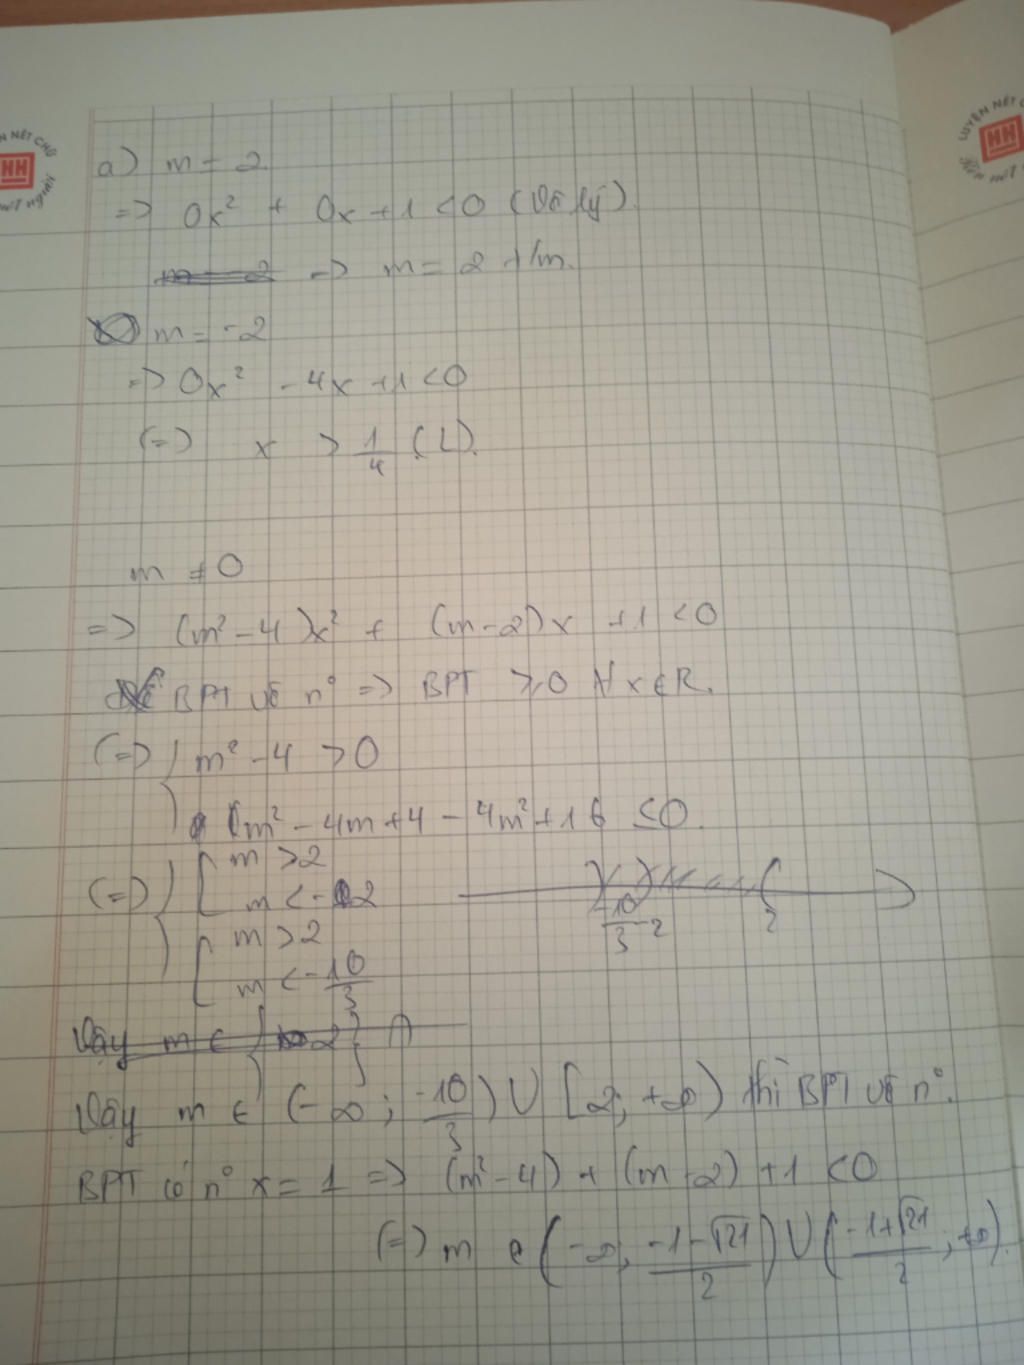 a) m = 2
=> 0x² + 0x + 1 < 0 (Vô lý)
=> m = 2 t/m.
m = -2
=> 0x² - 4x + 1 < 0
(=) x > 1/4 (L).
m ≠ 0
=> (m² - 4)x² + (m-2)x + 1 < 0
BPT vô n° => BPT ≥ 0 ∀x∈R.
(=> { m² - 4 > 0
m² - 4m + 4 - 4m² + 16 ≤ 0.
(=> { [ m > 2
m < -2
[ m > 2
m < -10/3
10/3 -2 2
Vậy m ∈ (-∞; -10/3) ∪ [2; +∞) thì BPT vô n°.
BPT có n° x = 1 => (m² - 4) + (m - 2) + 1 < 0
(=) m e (-∞; -1-√21/2) ∪ (-1+√21/2; +∞).
LUYỆN NÉT CHỮ
HH
Rèn nết người